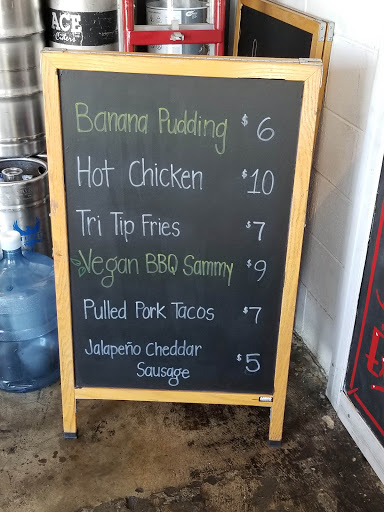 ACE
Ciders
Banana Pudding $6
Hot Chicken $10
Tri Tip Fries $7
Vegan BBQ Sammy $9
Pulled Pork Tacos $7
Jalapeño Cheddar $5
Sausage